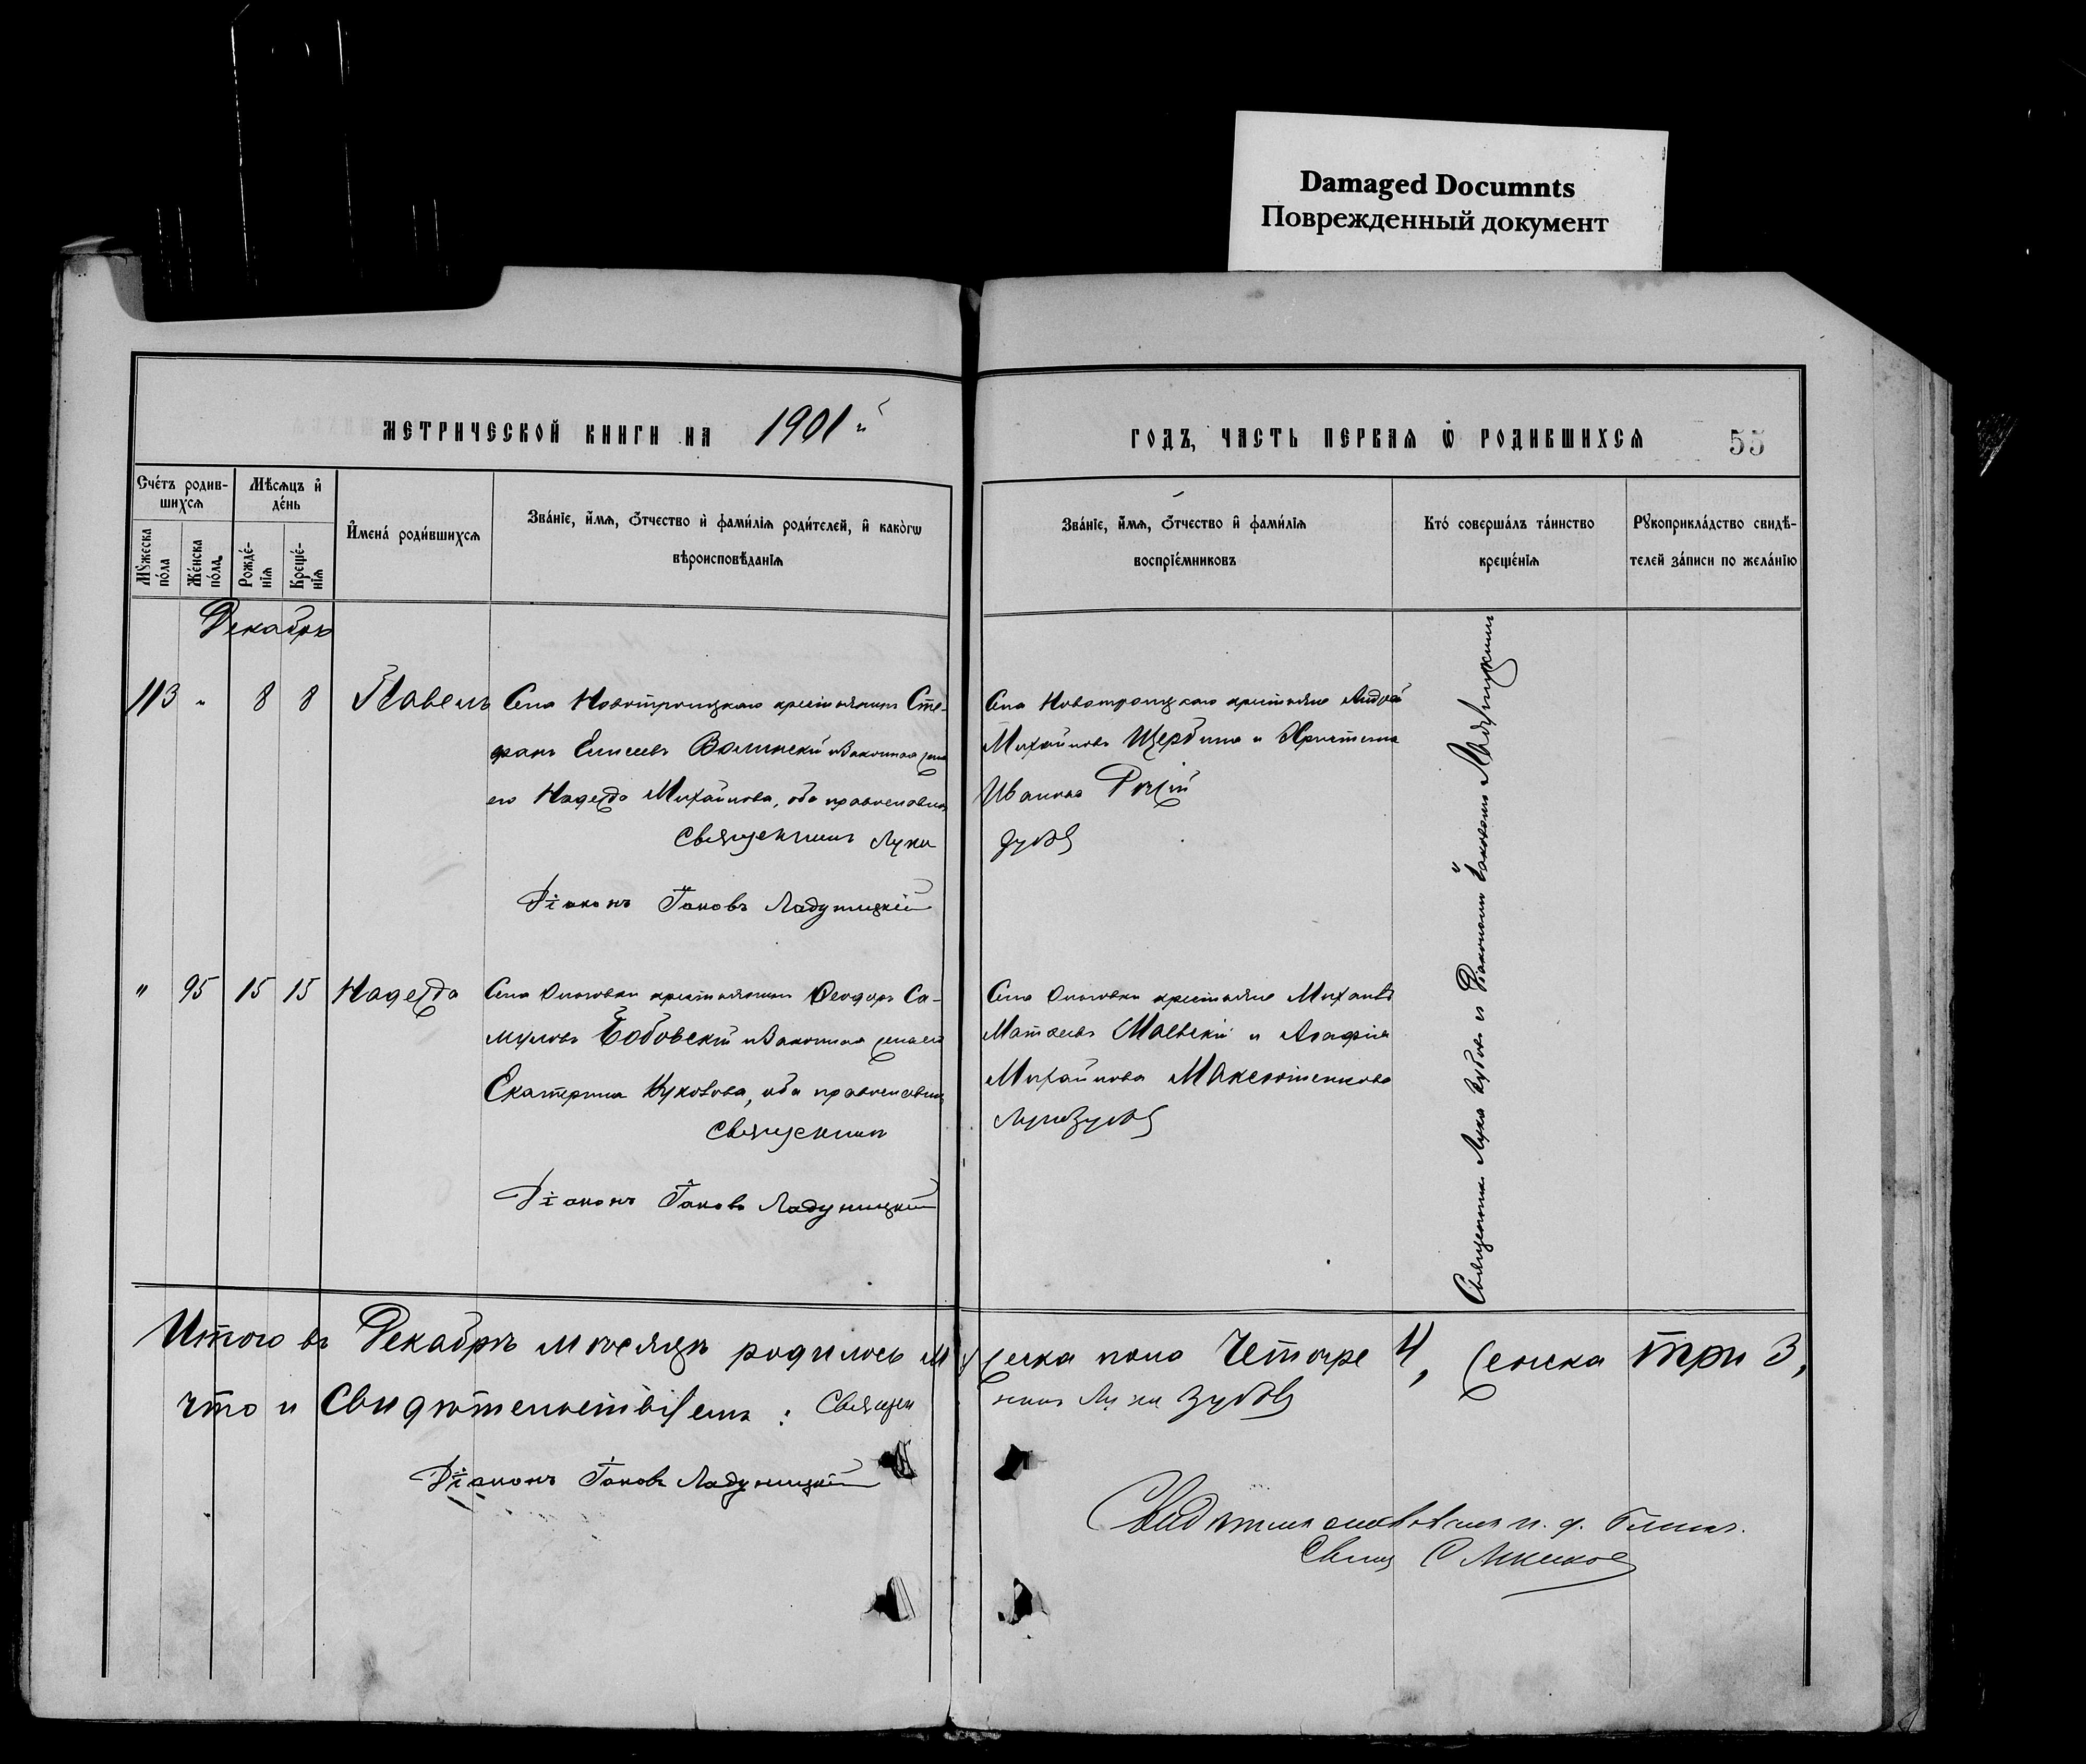 Damaged Documnts
Поврежденный документ
МЕТРИЧЕСКОЙ КНИГИ НА 1901 й
ГОДЪ, ЧАСТЬ ПЕРВАЯ Ѽ РОДИВШИХСЯ 55
Счетъ родив-
шихся
Мѣсяцъ и
день
Мужеска
пола
Женска
пола
Рожде-
нія
Креще-
нія
Имена родившихся
Званіе, имя, отчество и фамилія родителей, и какогѡ
вѣроисповѣданія
Званіе, имя, отчество и фамилія
воспріемниковъ
Кто совершалъ таинство
крещенія
Рукоприкладство свидѣ-
телей записи по желанію
Декабрь
113 " 8 8 Павелъ
Села Новотроицкаго крестьянинъ Сте-
фанъ Елисеевъ Волинскій и законная жена
его Надежда Михайлова, оба православные
Священникъ Лука
Діаконъ Іаковъ Ладужицкій
Села Новотроицкаго крестьяне Андрей
Михайловъ Щербина и Христина
Иванова
Зубовъ
" 95 15 15 Надежда
Села крестьянинъ Ѳеодоръ Са-
муиловъ Бобовскій и законная жена его
Екатерина, оба православные
Священникъ
Діаконъ Іаковъ Ладужицкій
Села крестьяне Михаилъ
Матвеевъ Маевскій и Агафія
Михайлова
Лука Зубовъ
Священникъ Лука Зубовъ съ Діакономъ Іаковомъ Ладужицкимъ
Итого въ Декабрѣ мѣсяцѣ родилось мужеска пола Четыре 4, женска три 3,
что и свидѣтельствуемъ: Священникъ Лука Зубовъ
Діаконъ Іаковъ Ладужицкій
Свящ